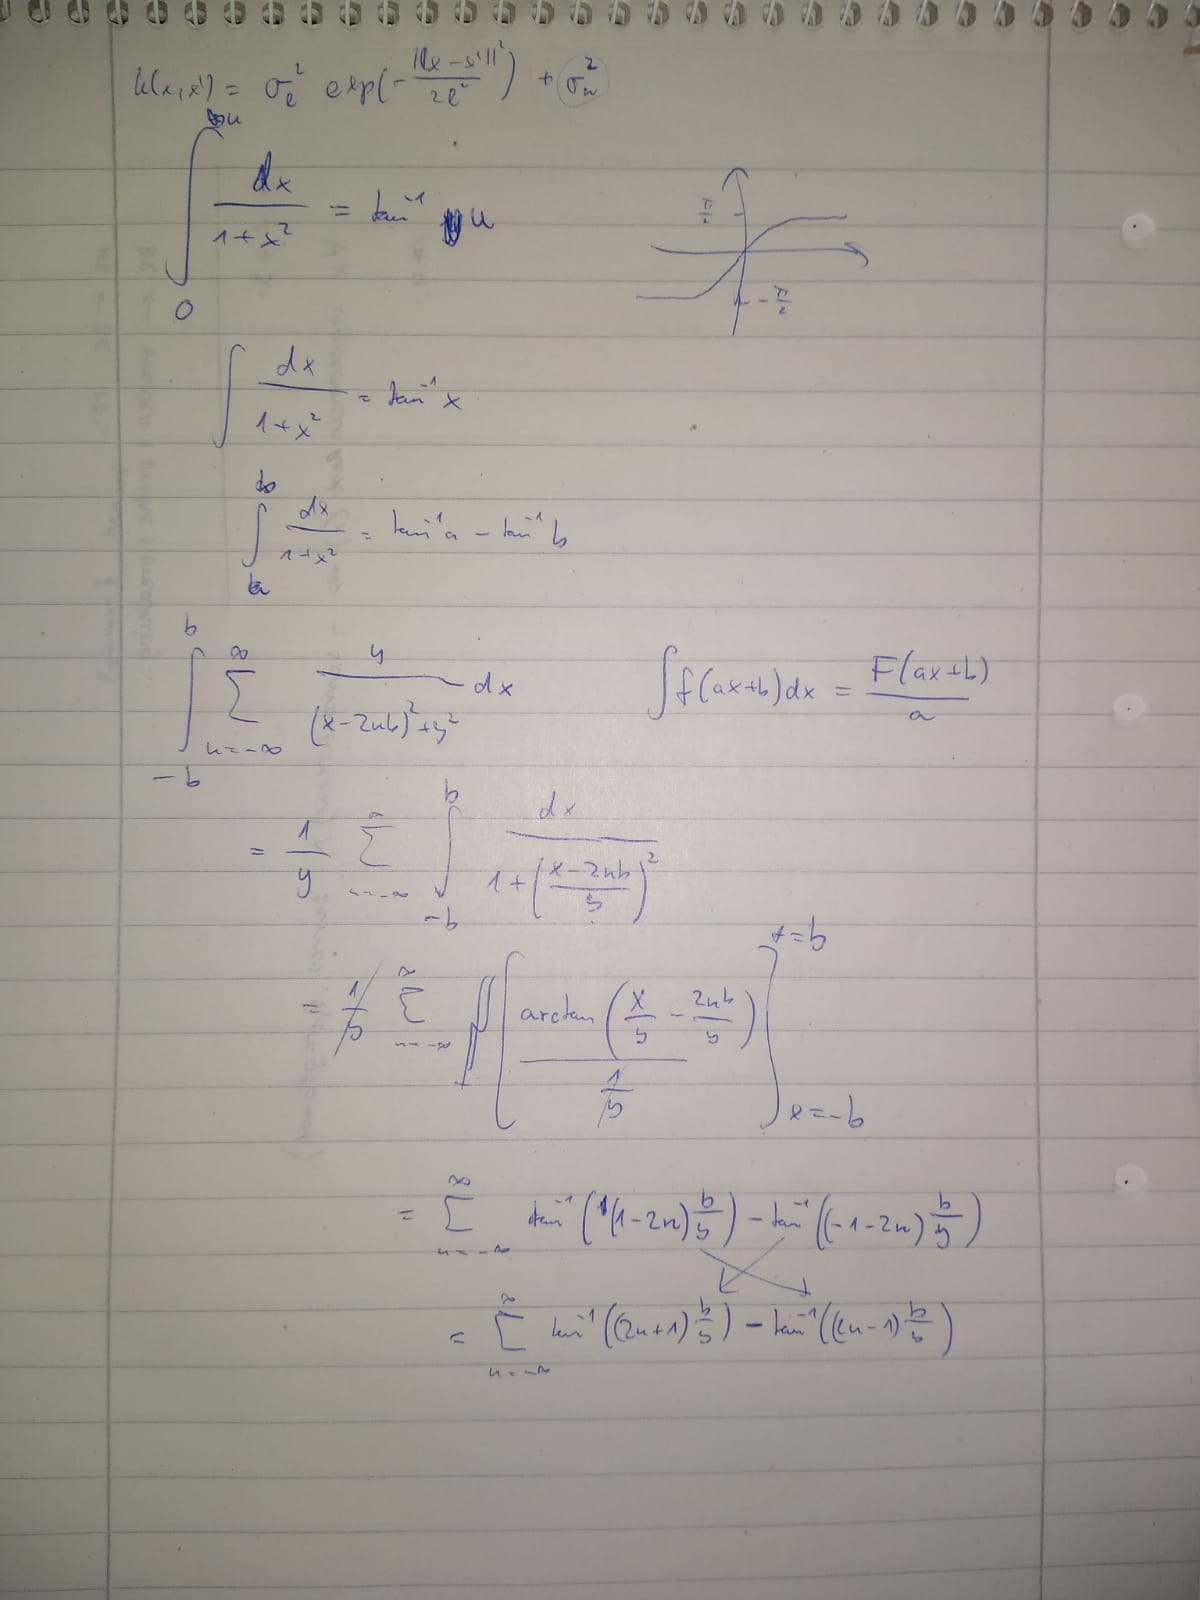 k(x,x') = σ_e² exp(-||x-x'||²/2l²) + σ_n²
∫_0^u dx/(1+x²) = tan⁻¹ u
π/2
-π/2
∫ dx/(1+x²) = tan⁻¹ x
∫_a^b dx/(1+x²) = tan⁻¹ a - tan⁻¹ b
∫_{-b}^b Σ_{n=-∞}^∞ y/((x-2nb)²+y²) dx
∫ f(ax+b)dx = F(ax+b)/a
= 1/y Σ_{n=-∞}^∞ ∫_{-b}^b dx/(1+((x-2nb)/y)²)
= 1/y Σ_{n=-∞}^∞ [arctan(x/y - 2nb/y)/(1/y)]_{x=-b}^{x=b}
= Σ_{n=-∞}^∞ tan⁻¹((1-2n) b/y) - tan⁻¹((-1-2n) b/y)
= Σ_{n=-∞}^∞ tan⁻¹((2n+1) b/y) - tan⁻¹((2n-1) b/y)